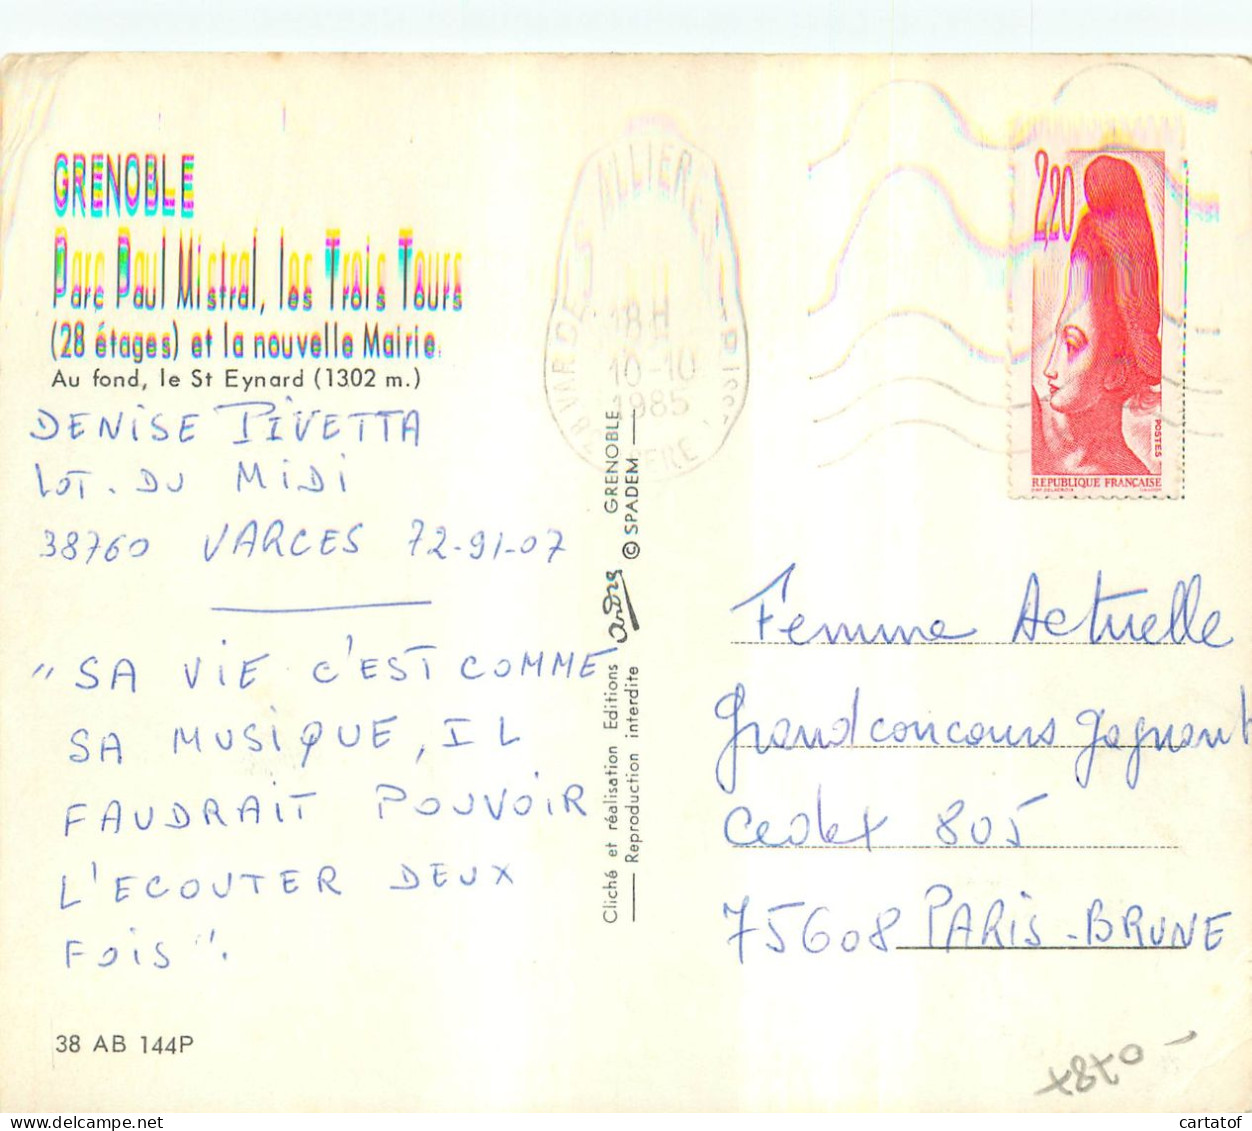 GRENOBLE
Parc Paul Mistral, les Trois Tours
(28 étages) et la nouvelle Mairie.
Au fond, le St Eynard (1302 m.)
DENISE PIVETTA
LOT. DU MIDI
38760 VARCES 72-91-07
"SA VIE C'EST COMME
SA MUSIQUE, IL
FAUDRAIT POUVOIR
L'ECOUTER DEUX
FOIS".
38 AB 144P
Cliché et réalisation Editions André GRENOBLE
Reproduction interdite © SPADEM
38 VARCES ALLIERES
18H
10-10
1985
ISERE
2,20
POSTES
REPUBLIQUE FRANÇAISE
Femme Actuelle
Grand concours gagnant
Cedex 805
75608 PARIS-BRUNE
cartatof